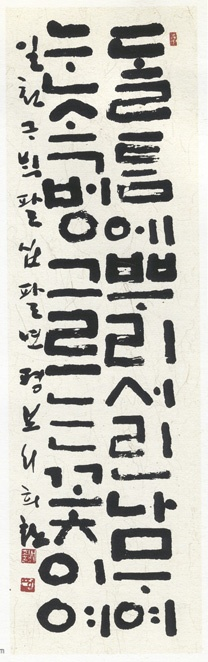 돌틈에ᄲᅮ리서린나무여
눈속벙그르는꽃이여
일천구백팔십팔년평보서희환